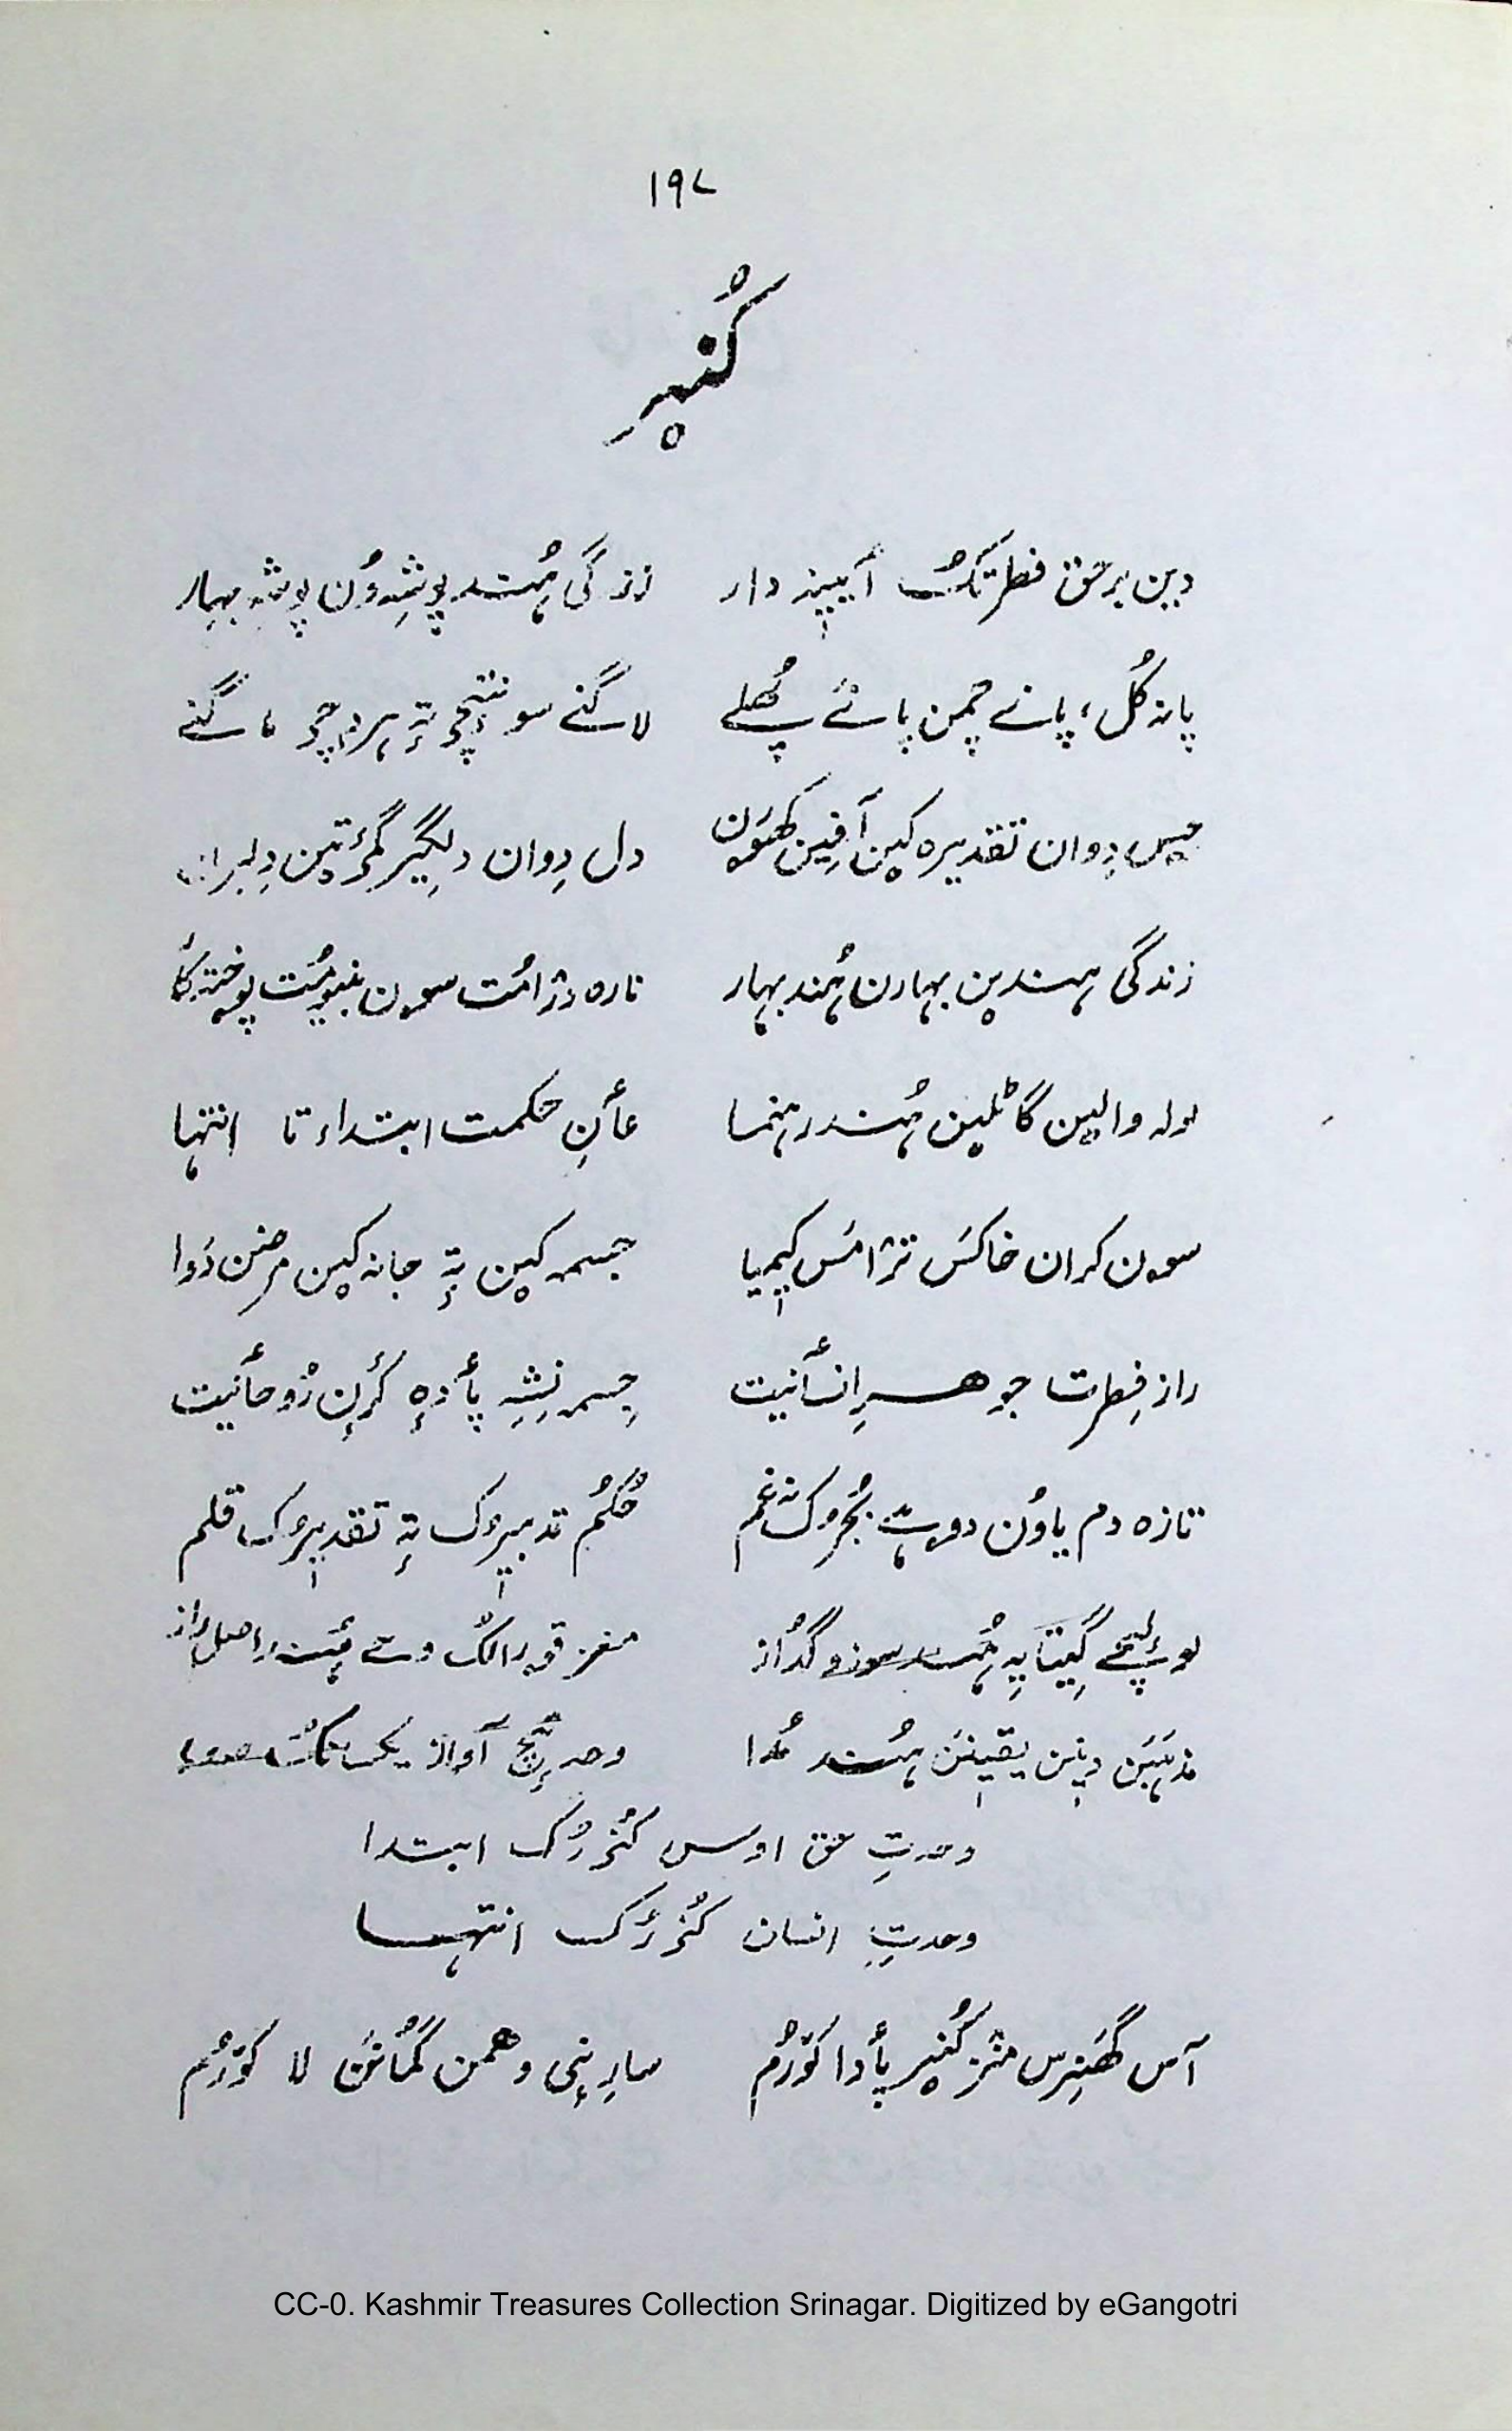 ۱۹۷
کُنیٖر
دین برحق فطرتُک آئینہ دار زندگی ہُند پوشِوُن پوشہ بہار
پانہ گُل، پانے چمن پانے پُھلے لاگنے سونتٕچ تہٕ ہردٕچ ماگنے
دِوان تقدیرہ کین آفرین دل دِوان دلگیر گمٕتین
زندگی ہندین بہارن ہُند بہار نارہ درامُت سون بنیومُت پوختہ
لولہ والین گاٹلین ہُند رہنما عٲنِ حکمت ابتداء تا انتہا
سون کران خاکس ترامس کیمیا جسمہ کین تہٕ جانہ کین مرضن دَوا
راز فِطرت جوہرِ انسٲنیت جِسمہ نِشہِ پٲدہٕ کٔرِن رُوحٲنیت
تازہ دم یاوُن دوہے بُجرُک نہ غم حُکُم تدبیرُک تہٕ تقدیرُک قلم
گیتایہِ ہُند سوز و گُداز مغز قورانُک ہُند اصل راز
مذہبَن دینن یقینَن ہُند مُدا وحدتٕچ آواز یکسانُک صدا
وحدتِ حق اوس کُنرُک ابتدا
وحدتِ انسان کُنرُک انتہا
آس گھنِرس منز کُنیر پٲدا کوٚرُم سارِنٕی وہمن گُمانَن لا کوٚرُم
CC-0. Kashmir Treasures Collection Srinagar. Digitized by eGangotri